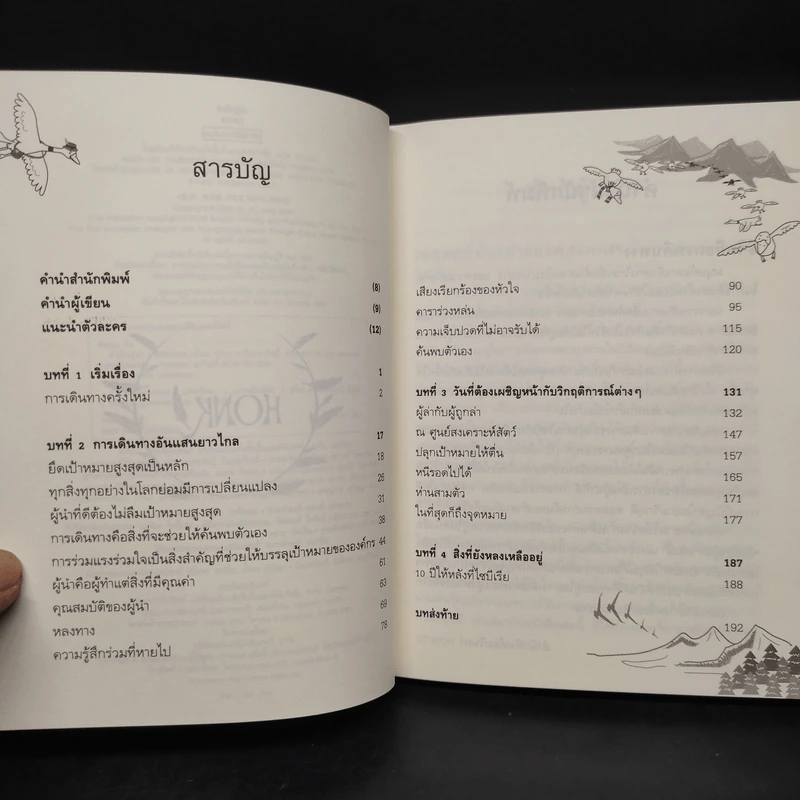 สารบัญ
คำนำสำนักพิมพ์ (8)
คำนำผู้เขียน (9)
แนะนำตัวละคร (12)
บทที่ 1 เริ่มเรื่อง 1
การเดินทางครั้งใหม่ 2
บทที่ 2 การเดินทางอันแสนยาวไกล 17
ยึดเป้าหมายสูงสุดเป็นหลัก 18
ทุกสิ่งทุกอย่างในโลกย่อมมีการเปลี่ยนแปลง 26
ผู้นำที่ดีต้องไม่ลืมเป้าหมายสูงสุด 31
การเดินทางคือสิ่งที่จะช่วยให้ค้นพบตัวเอง 38
การร่วมแรงร่วมใจเป็นสิ่งสำคัญที่ช่วยให้บรรลุเป้าหมายขององค์กร 44
ผู้นำคือผู้ทำแต่สิ่งที่มีคุณค่า 61
คุณสมบัติของผู้นำ 63
หลงทาง 69
ความรู้สึกร่วมที่หายไป 78
เสียงเรียกร้องของหัวใจ 90
คาราร่วงหล่น 95
ความเจ็บปวดที่ไม่อาจรับได้ 115
ค้นพบตัวเอง 120
บทที่ 3 วันที่ต้องเผชิญหน้ากับวิกฤติการณ์ต่างๆ 131
ผู้ล่ากับผู้ถูกล่า 132
ณ ศูนย์สงเคราะห์สัตว์ 147
ปลุกเป้าหมายให้ตื่น 157
หนีรอดไปได้ 165
ห่านสามตัว 171
ในที่สุดก็ถึงจุดหมาย 177
บทที่ 4 สิ่งที่ยังหลงเหลืออยู่ 187
10 ปีให้หลังที่ไซบีเรีย 188
บทส่งท้าย 192